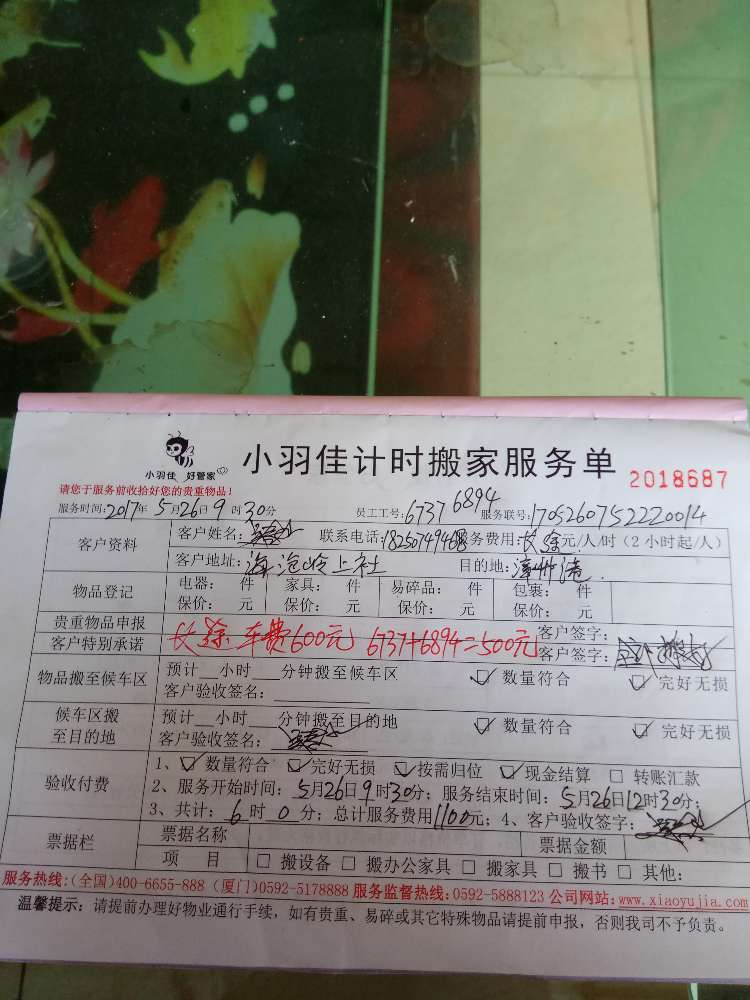 小羽佳 好管家
小羽佳计时搬家服务单 2018687
请您于服务前收拾好您的贵重物品!
服务时间:2017年5月26日9时30分 员工工号:6737 6894 服务联号:1705260752220014
客户资料 客户姓名: 联系电话:18250749468 服务费用:长途元/人/时(2小时起/人)
客户地址:海沧岭上社 目的地:漳州港.
物品登记 电器: 件 家具: 件 易碎品: 件 包裹: 件
保价: 元 保价: 元 保价: 元 保价: 元
贵重物品申报 客户签字:
客户特别承诺 长途车费600元 6737+6894=500元 客户签字:
物品搬至候车区 预计__小时___分钟搬至候车区 ☑ 数量符合 ☑ 完好无损
客户验收签名:
候车区搬至目的地 预计__小时___分钟搬至目的地 ☑ 数量符合 ☑ 完好无损
客户验收签名:
验收付费 1、☑ 数量符合 ☑ 完好无损 ☑ 按需归位 ☑ 现金结算 □ 转账汇款
2、服务开始时间:5月26日9时30分;服务结束时间:5月26日12时30分;
3、共计:6时0分;总计服务费用1100元;4、客户验收签字:
票据栏 票据名称 票据金额
项 目 □ 搬设备 □ 搬办公家具 □ 搬家具 □ 搬书 □ 其他:
服务热线:(全国)400-6655-888 (厦门)0592-5178888 服务监督热线:0592-5888123 公司网站:www.xiaoyujia.com
温馨提示:请提前办理好物业通行手续,如有贵重、易碎或其它特殊物品请提前申报,否则我司不予负责。